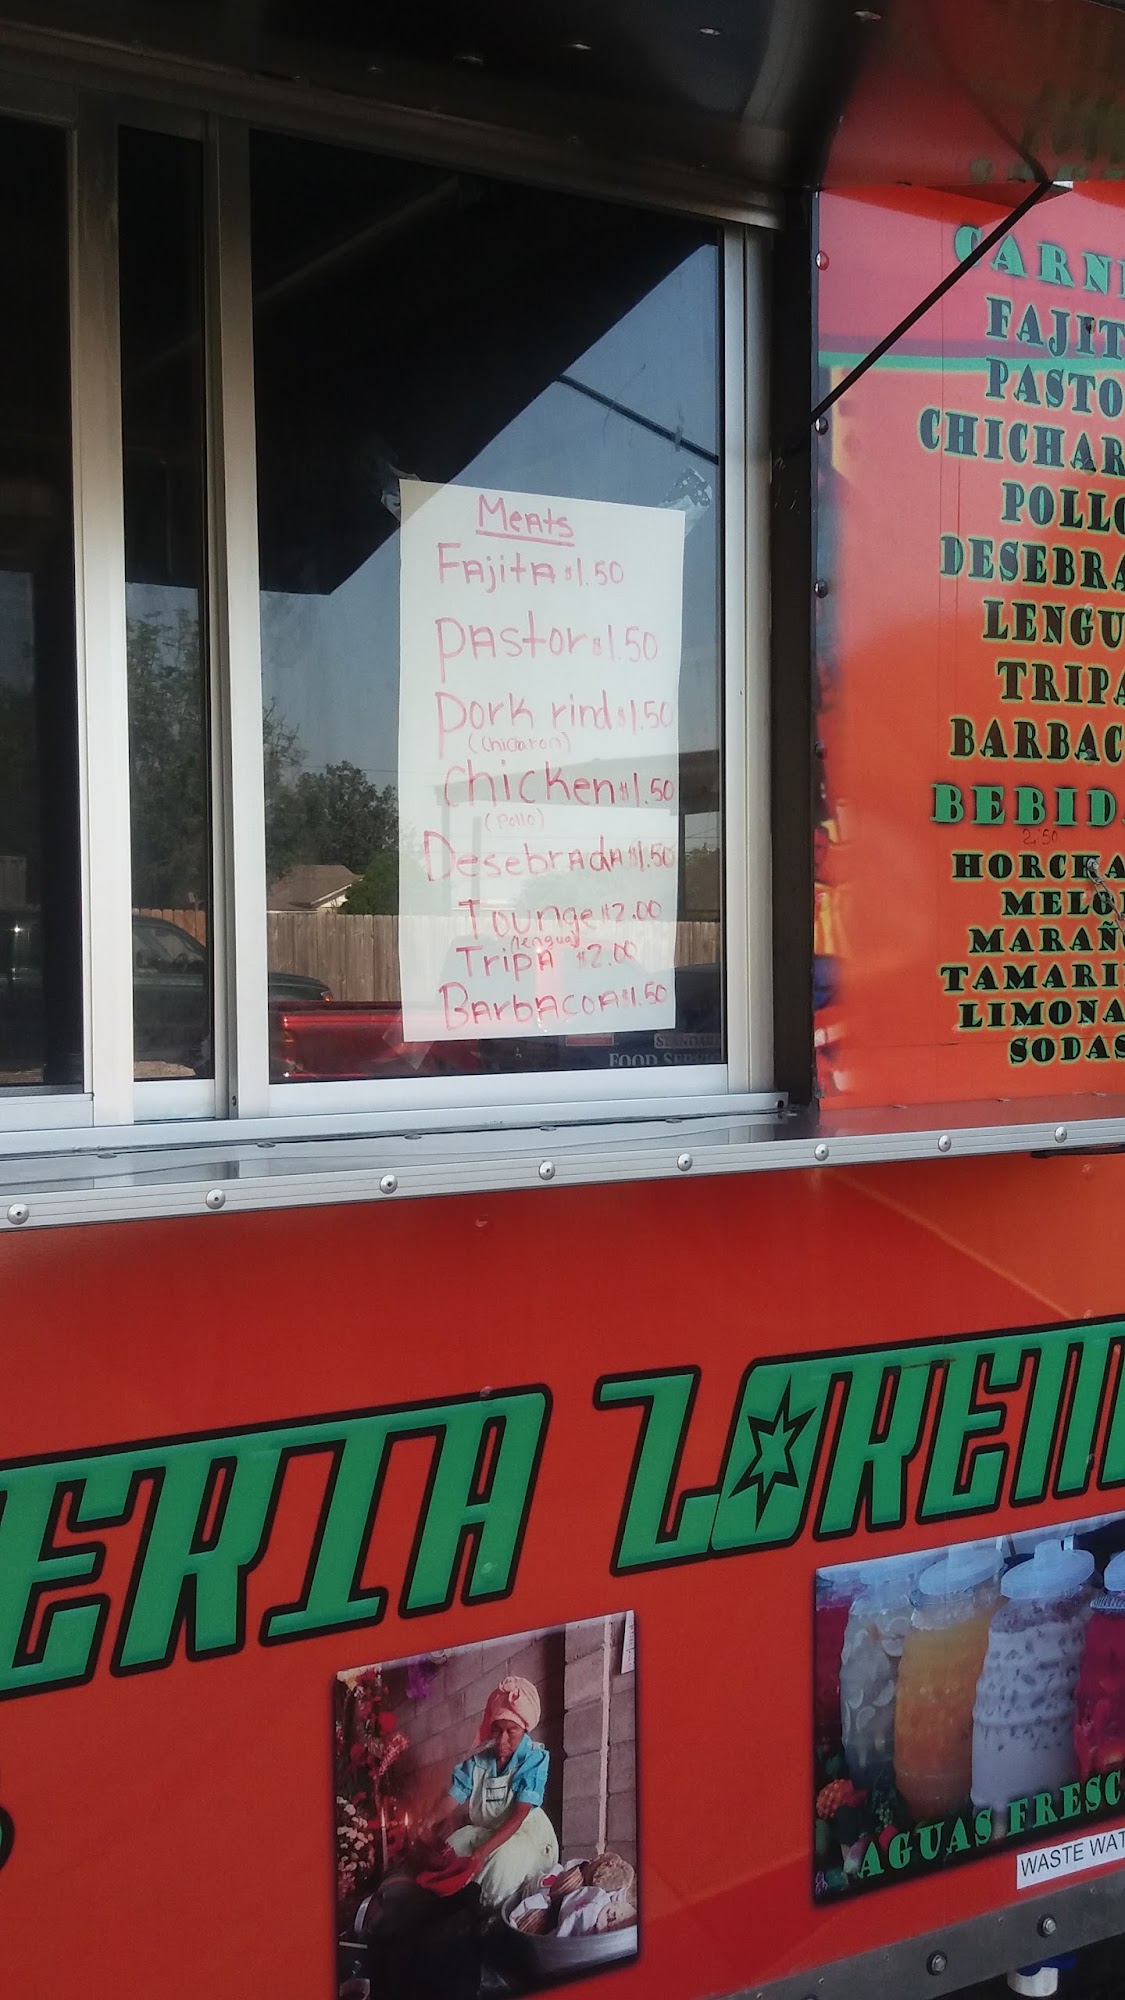 Meats
Fajita $1.50
Pastor $1.50
Pork rind $1.50
(Chicaron)
Chicken $1.50
(Pollo)
Desebrada $1.50
Tounge $2.00
(lengua)
Tripa $2.00
Barbacoa $1.50
STANDAR
FOOD SERVI
CARN
FAJIT
PASTO
CHICHAR
POLLO
DESEBRA
LENGU
TRIPA
BARBAC
BEBID
2.50
HORCHA
MELO
MARAÑ
TAMARI
LIMONA
SODAS
ERIA LOREN
AGUAS FRESC
WASTE WAT